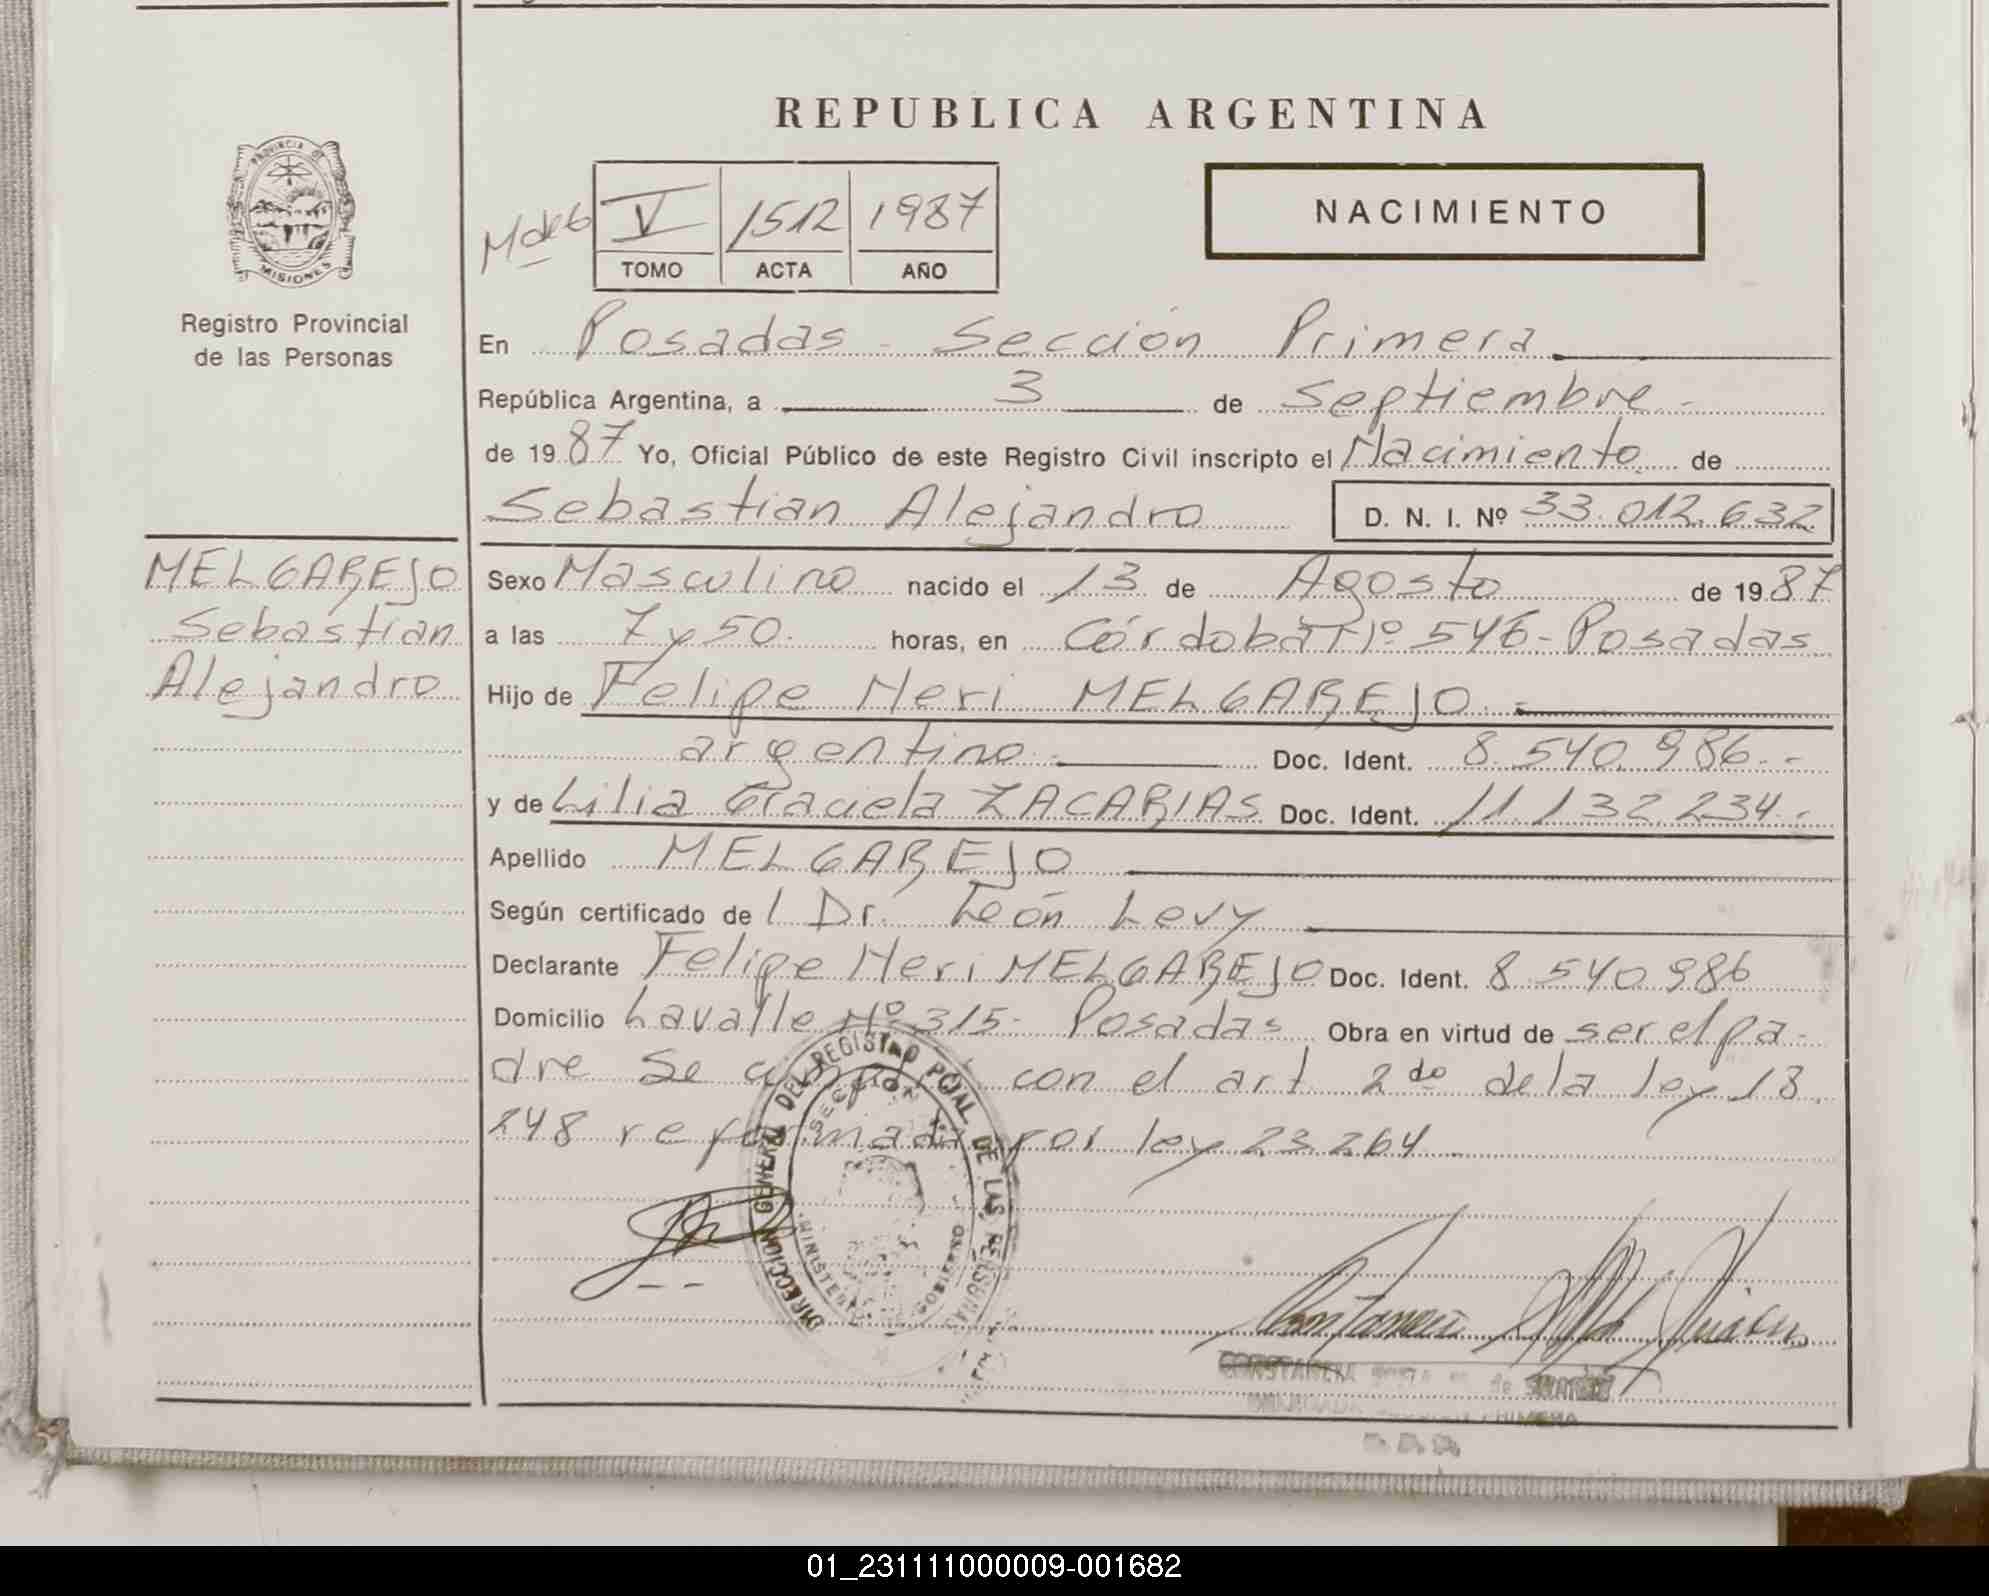 REPUBLICA ARGENTINA
PROVINCIA DE
MISIONES
Registro Provincial
de las Personas
V 1512 1987
TOMO ACTA AÑO
NACIMIENTO
En Posadas - Sección Primera
República Argentina, a 3 de Septiembre -
de 1987 Yo, Oficial Público de este Registro Civil inscripto el Nacimiento de
Sebastian Alejandro D. N. I. Nº 33.012.632
MELGAREJO
Sebastian
Alejandro
Sexo Masculino nacido el 13 de Agosto de 1987
a las 7 y 50 horas, en Córdoba Nº 546 - Posadas
Hijo de Felipe Neri MELGAREJO. -
argentino - Doc. Ident. 8.540.986. -
y de Lilia Graciela ZACARIAS Doc. Ident. 11.132.234. -
Apellido MELGAREJO
Según certificado de l Dr. León Levy
Declarante Felipe Neri MELGAREJO Doc. Ident. 8.540.986
Domicilio Lavalle Nº 315 - Posadas Obra en virtud de ser el pa-
dre Se con el art 2do de la ley 18.
248 reformada por ley 23.264
DIRECCION GENERAL DEL REGISTRO PCIAL. DE LAS PERSONAS
SECCION
MINISTERIO GOBIERNO
CONSTANCIA de SUAREZ
PRIMERA
01_231111000009-001682